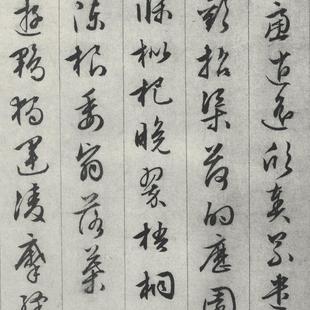 慮逍遙欣奏累遣
歡招渠荷的歷園
條枇杷晚翠梧桐
陳根委翳落葉
遊鵾獨運凌摩絳